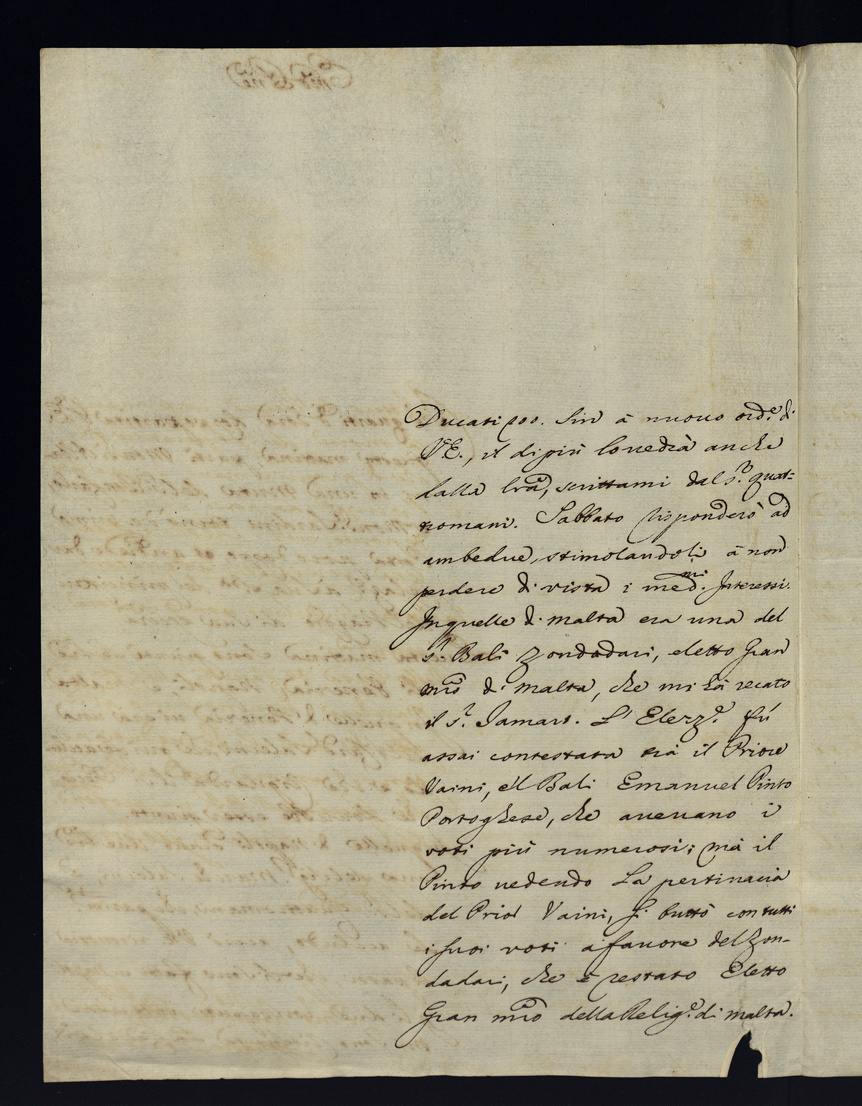 Ducati 200. Sin à nuovo ord.e di
V.E., il di più lo vedrà anche
dalla lrã, scrittami dal S.r quat=
tromani. Sabbato risponderò ad
ambedue, stimolandoli à non
perdere di vista i med.mi Interessi.
In quelle di malta era una del
S.r Bali Zondadari, eletto Gran
mrõ di malta, che mi hà recato
il S.r Jamart. L'Elez.e fù
assai contestata trà il Priore
Vaini, e'l Bali Emanuel Pinto
Portoghese, che avevano i
voti più numerosi; mà il
Pinto vedendo la pertinacia
del Prior Vaini, si buttò con tutti
i suoi voti a favore del Zon-
dadari, che è restato Eletto
Gran mrõ della Relig.e di malta.